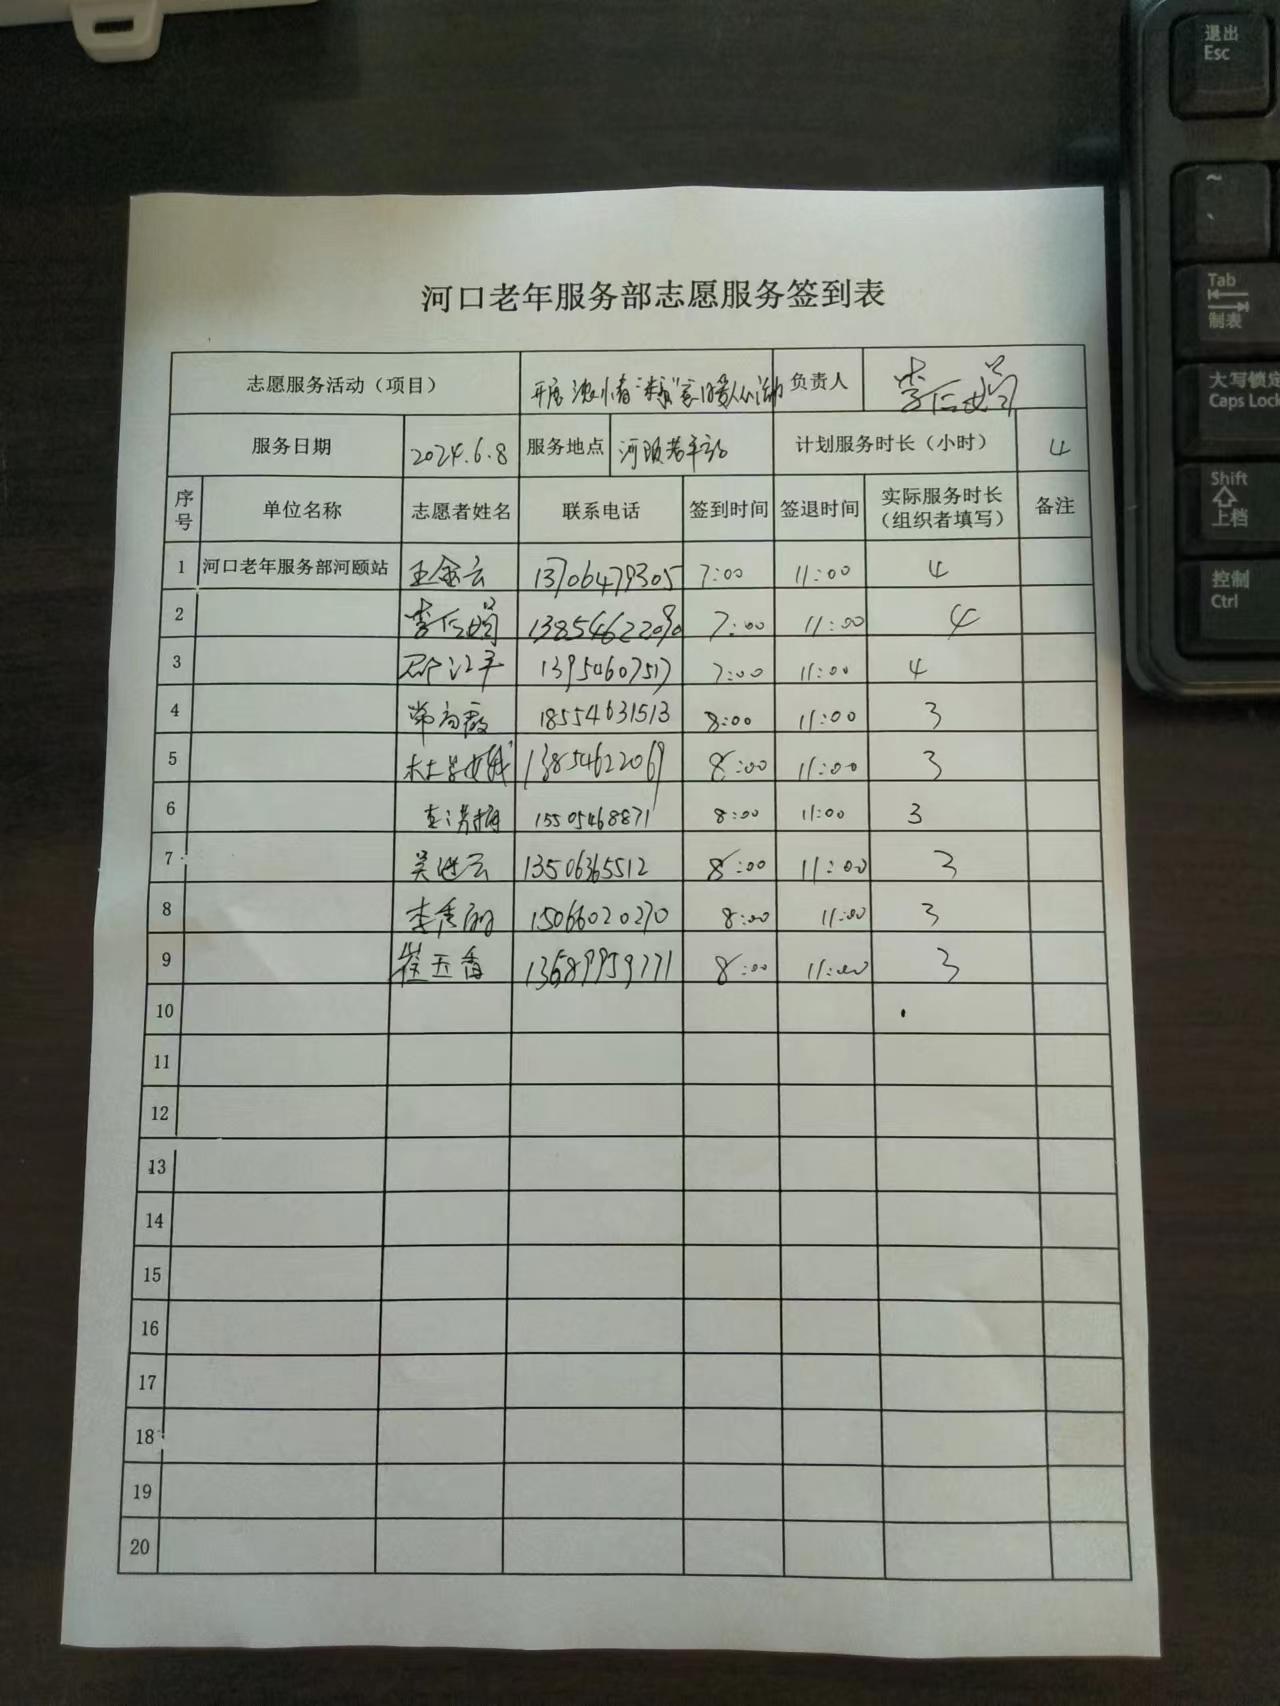 退出
Esc
~
、
Tab
制表
大写锁定
Caps Lock
Shift
上档
控制
Ctrl
河口老年服务部志愿服务签到表
志愿服务活动（项目） 开展 负责人 李仁娟
服务日期 2024.6.8 服务地点 河颐老年站 计划服务时长（小时） 4
序号 单位名称 志愿者姓名 联系电话 签到时间 签退时间 实际服务时长（组织者填写） 备注
1 河口老年服务部河颐站 王金云 13706479305 7:00 11:00 4
2 李仁娟 13854622090 7:00 11:00 4
3 江平 13954607517 7:00 11:00 4
4 常向霞 18554631513 8:00 11:00 3
5 13854622069 8:00 11:00 3
6 15505468871 8:00 11:00 3
7 吴进云 13506365512 8:00 11:00 3
8 李秀丽 15066020270 8:00 11:00 3
9 崔玉香 13689959771 8:00 11:00 3
10
11
12
13
14
15
16
17
18
19
20